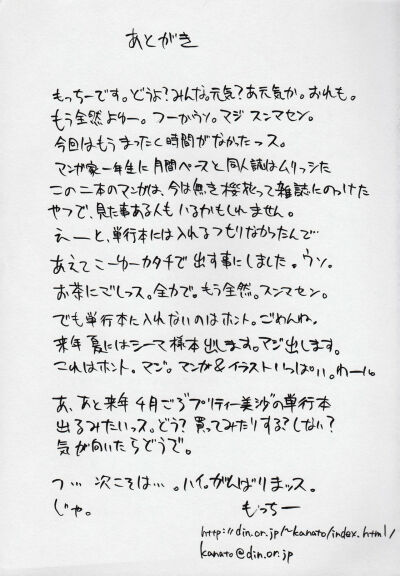 あとがき
もっちーです。どうよ?みんな。元気?あ元気か。おれも。
もう全然よゆー。つーかウソ。マジ スンマセン。
今回はもうまったく時間がなかったっス。
マンガ家一年生に月間ペースと同人誌はムリっした
この二本のマンガは、今は無き桜花って雑誌にのっけた
やつで、見た事ある人もいるかもしれません。
えーと、単行本には入れるつもりなかったんで…
あえてこーゆーカタチで出す事にしました。ウソ。
お茶にごしっス。全力で。もう全然。スンマセン。
でも単行本に入れないのはホント。ごめんね。
来年夏にはシーマ様本出します。マジ出します。
これはホント。マジ。マンガ&イラストいっぱい。わーい。
あ、あと来年4月ごろプリティー美沙の単行本
出るみたいっス。どう?買ってみたりする?しない?
気が向いたらどうで。
つ…次こそは…。ハイ。がんばりまッス。
じゃ。 もっちー
http://din.or.jp/~kanato/index.html/
kanato@din.or.jp